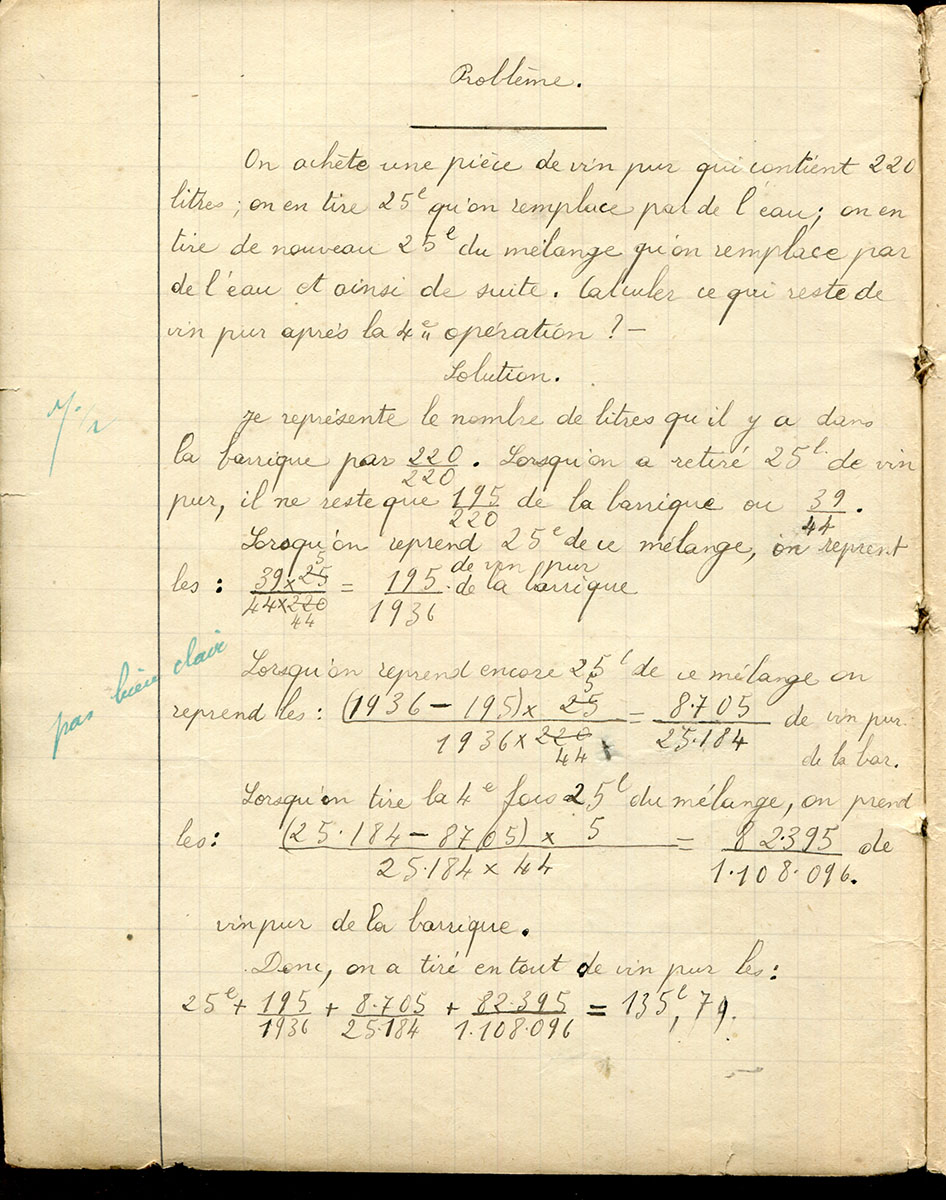 Problème.
On achète une pièce de vin pur qui contient 220
litres ; on en tire 25l qu'on remplace par de l'eau ; on en
tire de nouveau 25l du mélange qu'on remplace par
de l'eau et ainsi de suite. Calculer ce qui reste de
vin pur après la 4e opération ? —
Solution.
Je représente le nombre de litres qu'il y a dans
la barrique par 220/220. Lorsqu'on a retiré 25l de vin
pur, il ne reste que 195/220 de la barrique ou 39/44.
Lorsqu'on reprend 25l de ce mélange, on reprent
les : 39×25/44×220 5 44 = 195/1936 de vin pur de la barrique
pas bien clair
Lorsqu'on reprend encore 25l de ce mélange on
reprend les : (1936 − 195) × 25/1936 × 220 5 44 = 8.705/25.184 de vin pur
de la bar.
Lorsqu'on tire la 4e fois 25l du mélange, on prend
les : (25.184 − 8705) × 5/25.184 × 44 = 82.395/1.108.096. de
vin pur de la barrique.
Donc, on a tiré en tout de vin pur les :
25l + 195/1936 + 8.705/25.184 + 82.395/1.108.096 = 135l,79.